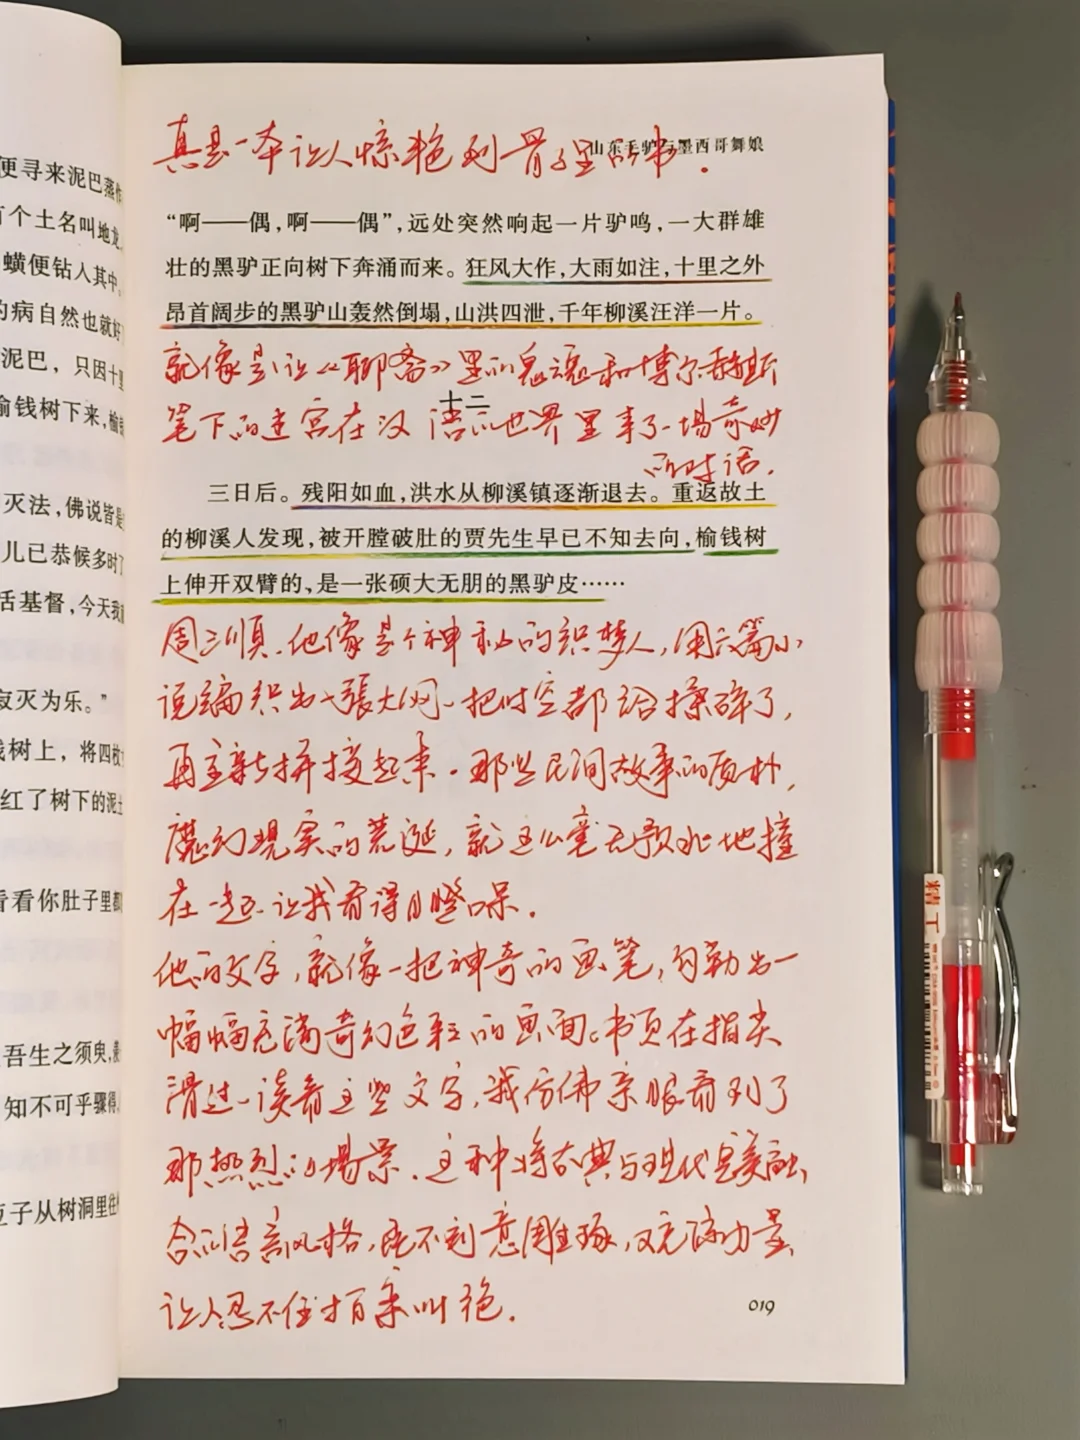 便寻来泥巴蒸作
有个土名叫地龙
蟥便钻入其中。
的病自然也就好
泥巴，只因十里
榆钱树下来，榆
灭法，佛说皆是
儿已恭候多时了
活基督，今天我
寂灭为乐。”
钱树上，将四枚
红了树下的泥土
看看你肚子里都
吾生之须臾，羡
知不可乎骤得，
豆子从树洞里往
真是一本让人惊艳到骨子里的书。
山东毛驴与墨西哥舞娘
“啊——偶，啊——偶”，远处突然响起一片驴鸣，一大群雄
壮的黑驴正向树下奔涌而来。狂风大作，大雨如注，十里之外
昂首阔步的黑驴山轰然倒塌，山洪四泄，千年柳溪汪洋一片。
就像是让《聊斋》里的鬼魂和博尔赫斯
十二
笔下的迷宫在汉语的世界里来了一场奇妙
的对话。
三日后。残阳如血，洪水从柳溪镇逐渐退去。重返故土
的柳溪人发现，被开膛破肚的贾先生早已不知去向，榆钱树
上伸开双臂的，是一张硕大无朋的黑驴皮……
周三顺，他像是个神秘的织梦人，用六篇小
说编织出一张大网，把时空都给揉碎了，
再重新拼接起来。那些民间故事的质朴，
魔幻现实的荒诞，就这么毫无预兆地撞
在一起，让我看得目瞪口呆。
他的文字，就像一把神奇的画笔，勾勒出一
幅幅充满奇幻色彩的画面。书页在指尖
滑过，读着这些文字，我仿佛亲眼看到了
那热烈的场景。这种将古典与现代完美融
合的语言风格，既不刻意雕琢，又充满力量，
让人忍不住拍案叫绝。
019
精工